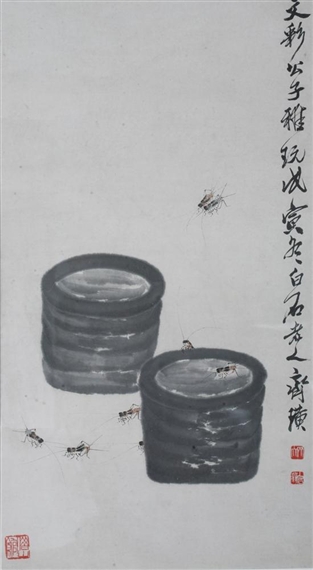 文彰公子雅玩戊寅冬白石老人齐璜